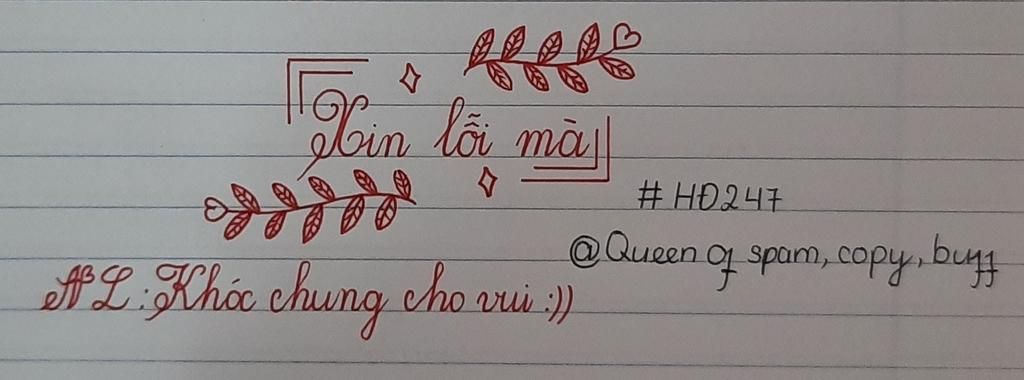 Xin lỗi mà
#HĐ247
@Queen of spam, copy, buff
NL: Khóc chung cho vui :))